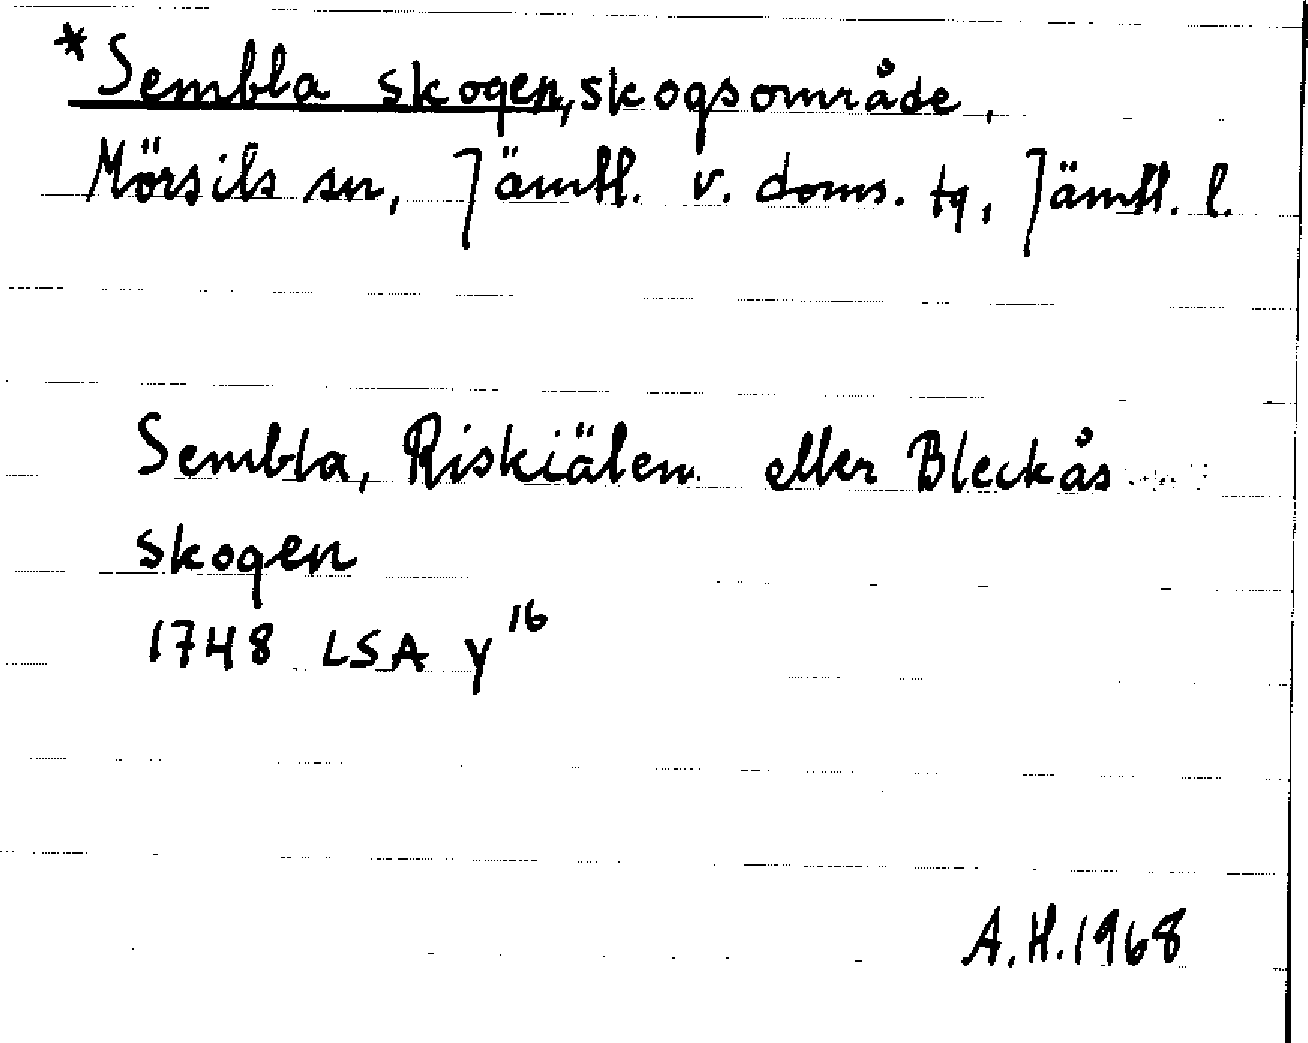 *Sembla skogen, skogsområde,
Mörsils sn, Jämtl. v. doms. tg, Jämtl. l.
Sembla, Riskiälen eller Bleckås
skogen
1748 LSA y16
A.H.1968